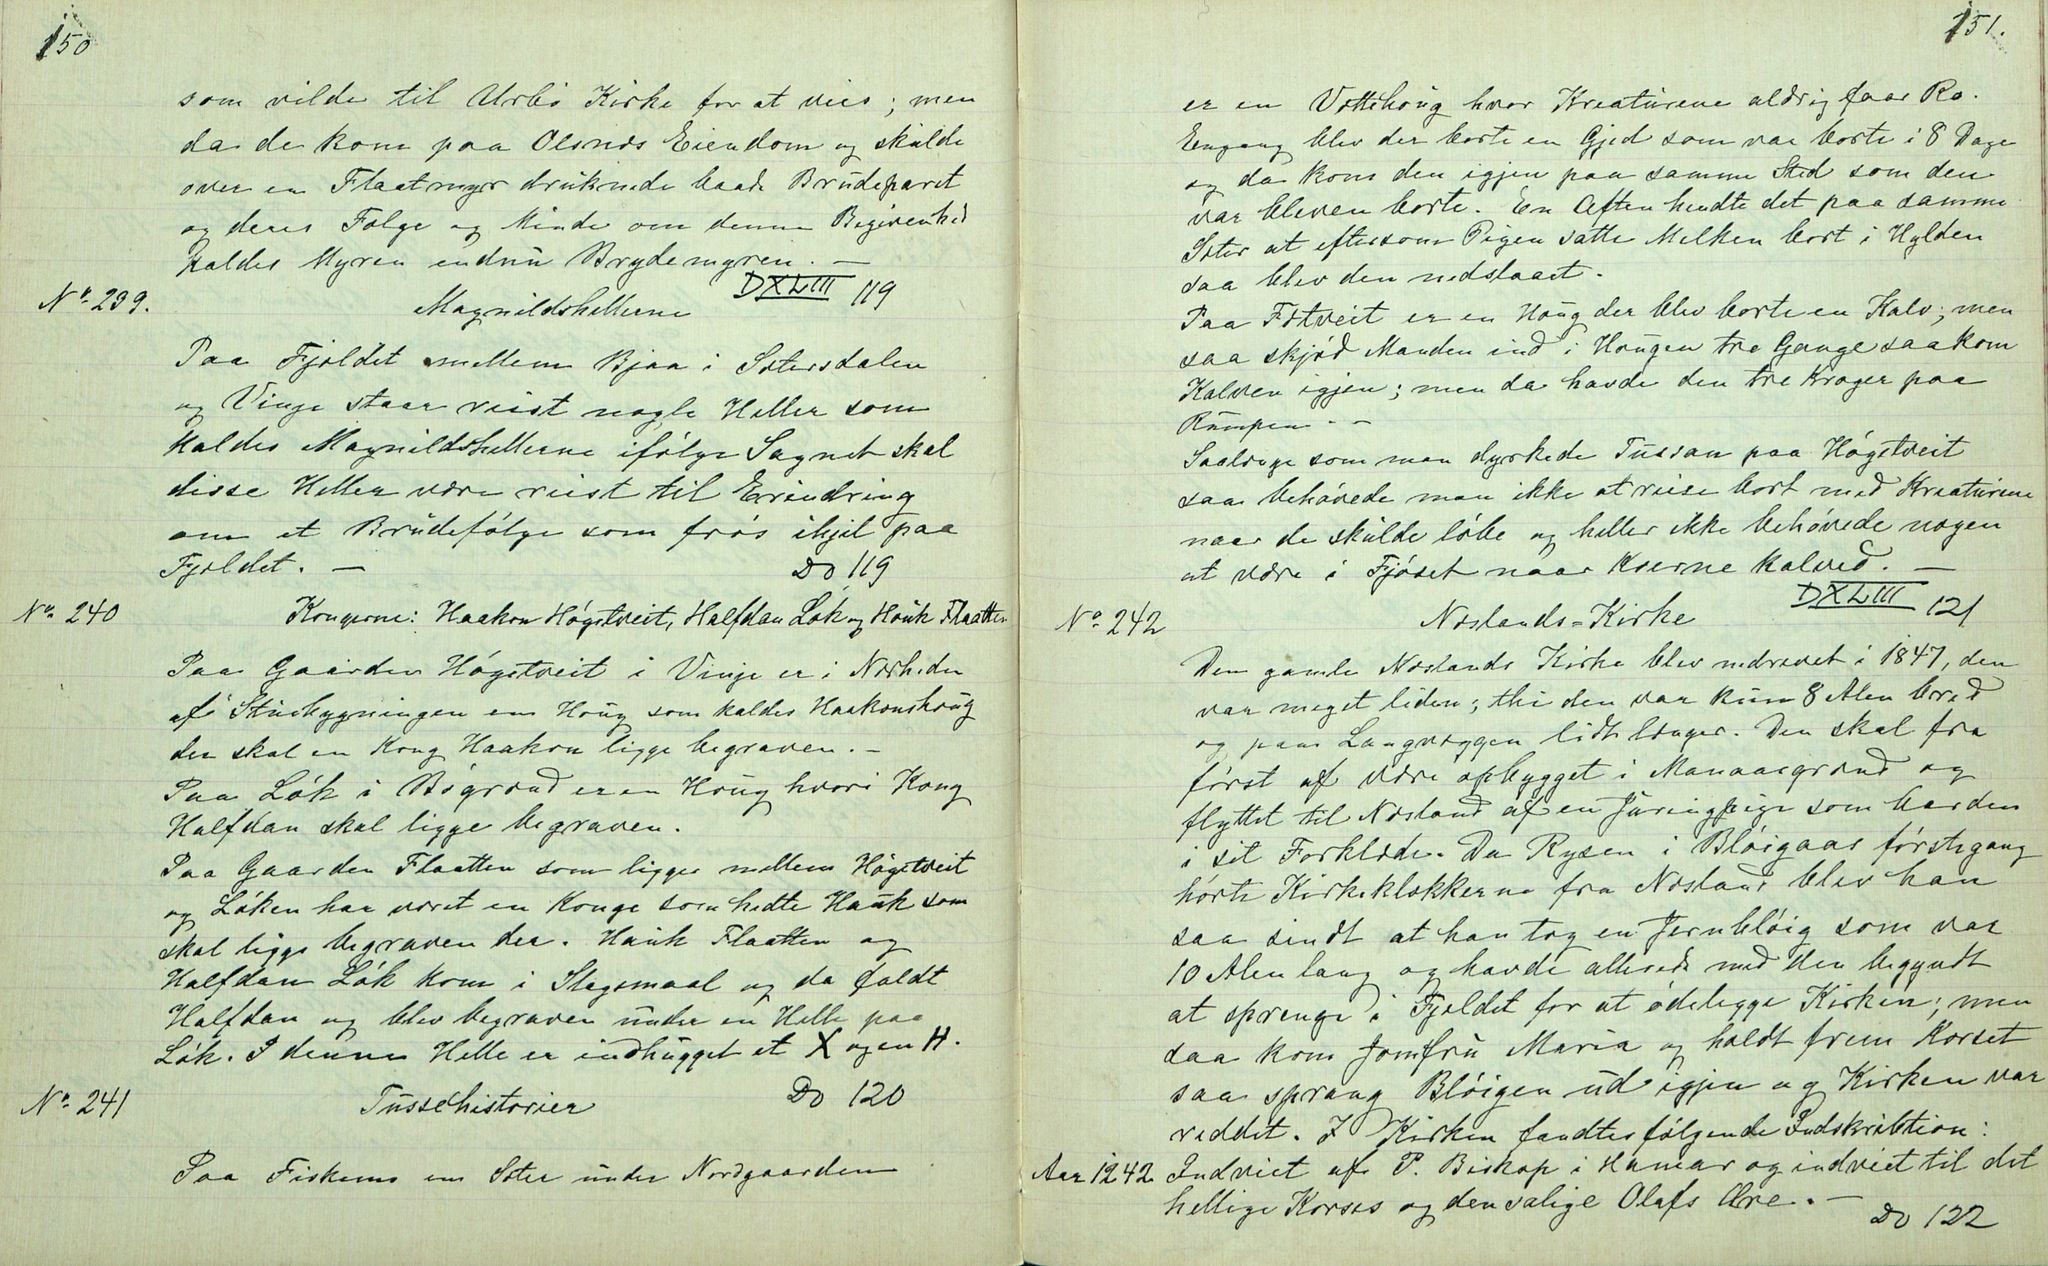 150
som vilde til Urbø Kirke for at vies; men
da de kom paa Olsnes Eiendom og skulde
over en Flaatmyr druknede baade Brudeparet
og deres Følge og Minde om denne Begivenhed
kaldes Myren endnu Brydemyren. —
DXLIII 119
No. 239. Magnildshellerne
Paa Fjeldet mellem Bjaa i Sætersdalen
og Vinje staar reist nogle Heller som
kaldes Magnildshellerne ifølge Sagnet skal
disse Heller være reist til Erindring
om et Brudefølge som frøs ihjel paa
Fjeldet. — Do 119
No. 240 Kongerne: Haakon Høgstveit, Halfdan Løk og Hauk Flaatten
Paa Gaarden Høgstveit i Vinje er i Nærheden
af Stuebygningen en Houg som kaldes Haakonshoug
der skal en Kong Haakon ligge begraven. —
Paa Løk i Bøgrænd er en Houg hvori Kong
Halfdan skal ligge begraven.
Paa Gaarden Flaatten som ligger mellem Høgstveit
og Løken har været en Konge som hedte Hauk som
skal ligge begraven der. Hauk Flaatten og
Halfdan Løk kom i Slagsmaal og da faldt
Halfdan og blev begraven under en Helle paa
Løk. I denne Helle er indhugget et X og en H.
Do 120
No. 241 Tussehistorier
Paa Fiskerns en Sæter under Nordgaarden
151.
er en Vottehoug hvor Kreaturene aldrig faar Ro.
Engang blev der borte en Gjed som var borte i 8 Dage
og da kom den igjen paa samme Sted som den
var bleven borte. En Aften hendte det paa samme
Sæter at eftersom Pigen satte Melken bort i Hylden
saa blev den nedslaaet.
Paa Fætveit er en Houg der blev borte en Kalv; men
saa skjød Manden ind i Hougen tre Gange saa kom
Kalven igjen; men da havde den tre Kroger paa
Rumpen. —
Saalænge som man dyrkede Tussan paa Høgstveit
saa behøvede man ikke at reise bort med Kreaturene
naar de skulde løbe og heller ikke behøvede nogen
at være i Fjøset naar Kuerne kalved. —
DXLIII 121
No. 242 Næslands=Kirke
Den gamle Næslands Kirke blev nedrevet i 1847, den
var meget liden; thi den var kun 8 Alen bred
og paa Langvæggen lidt længer. Den skal fra
først af være opbygget i Manaasgrænd og
flyttet til Næsland af en Jutingpige som bar den
i sit Forklæde. Da Rysen i Bløigaas førstegang
hørte Kirkeklokkerne fra Næsland blev han
saa sindt at han tog en Jernbløig som var
10 Alen lang og havde allerede med den begyndt
at sprenge i Fjeldet for at ødelegge Kirken; men
saa kom Jomfru Maria og holdt frem Korset
saa sprang Bløigen ud igjen og Kirken var
reddet. I Kirken fandtes følgende Indskribtion:
Aar 1242 Indviet af P. Biskop i Hamar og indviet til det
hellige Korses og den salige Olafs Ære. —
Do 122